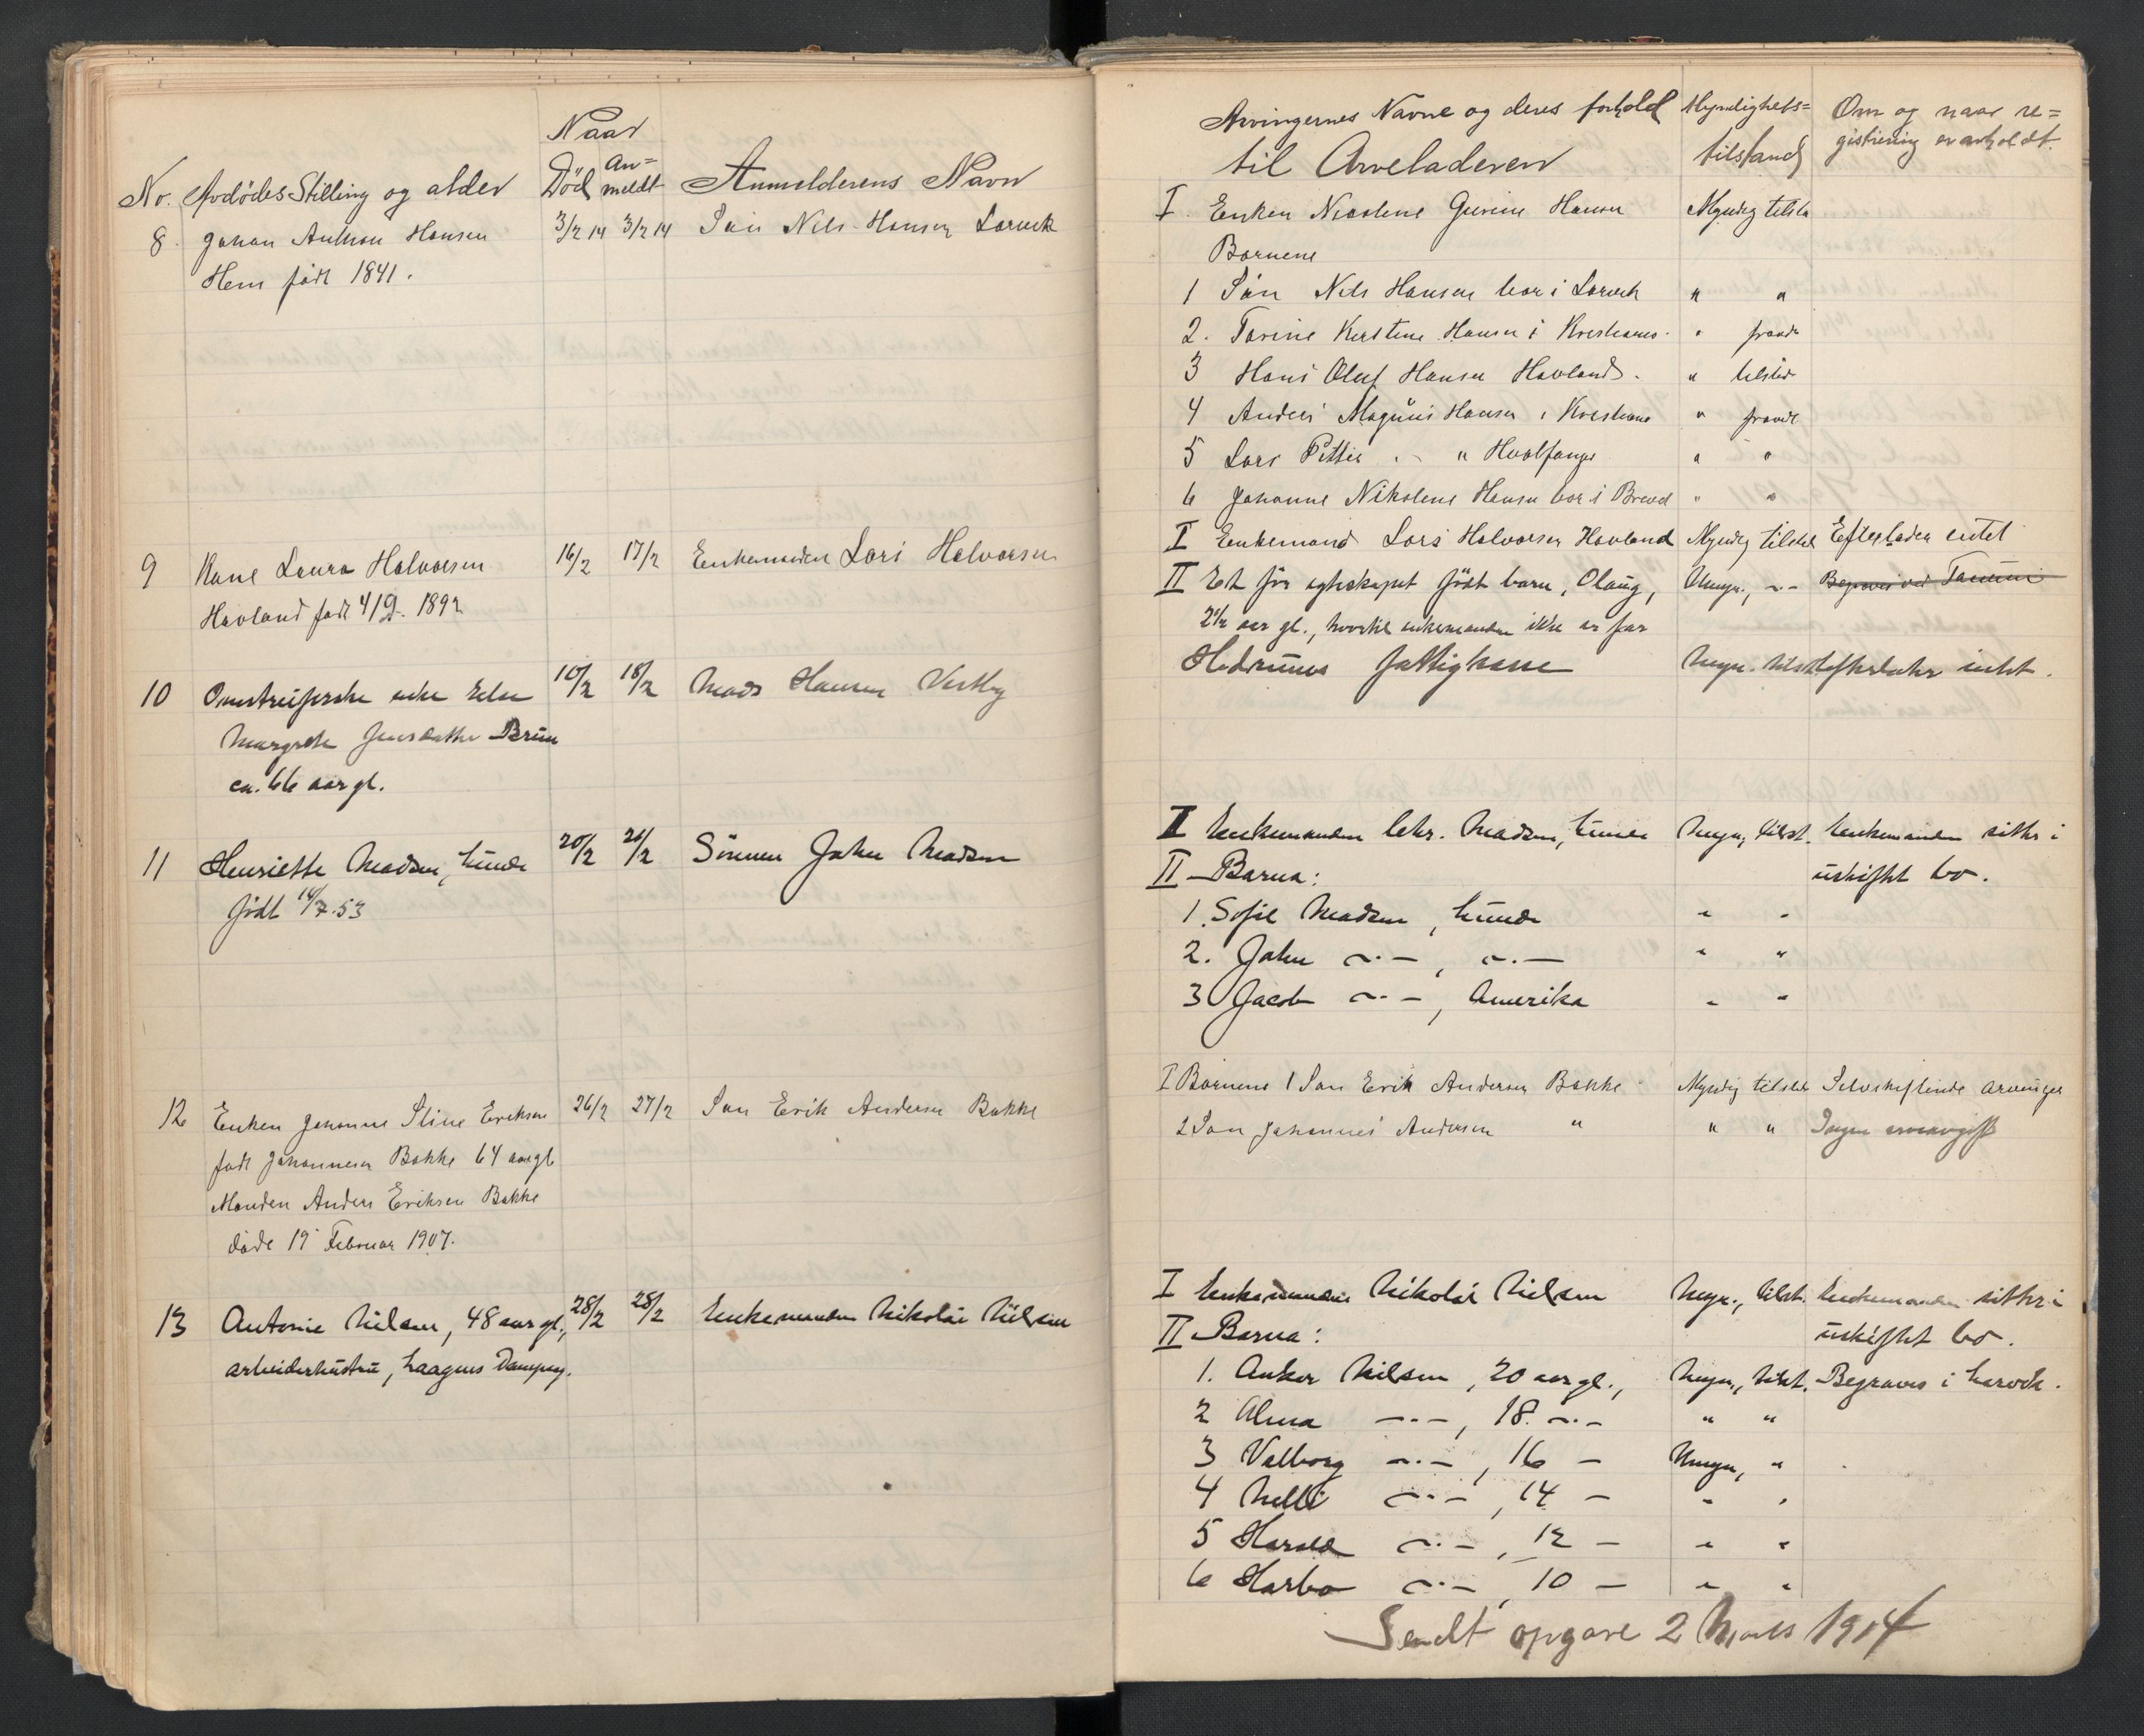 Naar
No. Avdødes Stilling og alder Død An= meldt Anmelderens Navn
8. Johan Anthon Hansen 3/2 14 3/2 14 Søn Nils Hansen Larvik
Hem født 1841.
9 Kone Laura Halvorsen 16/2 17/2 Enkemanden Lars Halvorsen
Havland født 4/9. 1892
10 Omstreiferske enke Else 10/2 18/2 Mads Hansen Vestby
Margrete Jensdatter Brun
ca. 66 aar gl.
11 Henriette Madsen, Lunde 20/2 21/2 Sønnen John Madsen
født 14/7.53
12 Enken Johanne Stine Eriksen 26/2 27/2 Søn Erik Andersen Bakke
født Johannesen Bakke 64 aar gl
Manden Anders Eriksen Bakke
døde 19 Februar 1907.
13 Antonie Nilsen, 48 aar gl., 28/2 28/2 Enkemanden Nikolai Nilsen
arbeiderhustru, Laagens Dampsag.
Arvingernes Navne og deres forhold Myndighets= Om og naar re=
til Arveladeren tilstand gistrering er avholdt.
I Enken Gurine Hansen Myndig tilstede
Børnene
1 Søn Nils Hansen bor i Larvik " "
2. Kirstine Hansen i " fravær
3 Hans Oluf Hansen Havland. " tilsted
4 Anders Magnus Hansen i " fravær
5 Lars Petter " " Hvalfanger " "
6 Johanne Nikoline Hansen bor i " "
I Enkemand Lars Halvorsen Havland Myndig tilsted Efterlader intet
II Et før egteskapet født barn, Olaug, Umyn., -"- Begraves ved Tanum
2 1/2 aar gl., hvortil enkemanden ikke er far
Hedrums fattigkasse Myn. tilst. efterlater intet.
I Enkemanden Chr. Madsen, Lunde Myn, tilst. Enkemanden sitter i
II Barna: uskiftet bo.
1. Sofie Madsen, Lunde " "
2. John -"-, -"- " "
3 Jacob -"-, Amerika " "
I Børnene 1 Søn Erik Andersen Bakke Myndig tilsted Selvskiftende arvinger
2 Søn Johannes Andersen " " " Ingen arveavgift
I Enkemanden Nikolai Nilsen Myn., tilst. Enkemanden sitter i
II Barna: uskiftet bo.
1. Anker Nilsen, 20 aar gl., Myn., tilst. Begraves i Larvik.
2 Alma -"-, 18. -"- " "
3 Valborg -"-, 16 - Umyn, "
4 Nelli -"-, 14 - " "
5 Harald -"-, 12 - " "
6 -"-, 10 - " "
Sendt opgave 2 Mars 1914